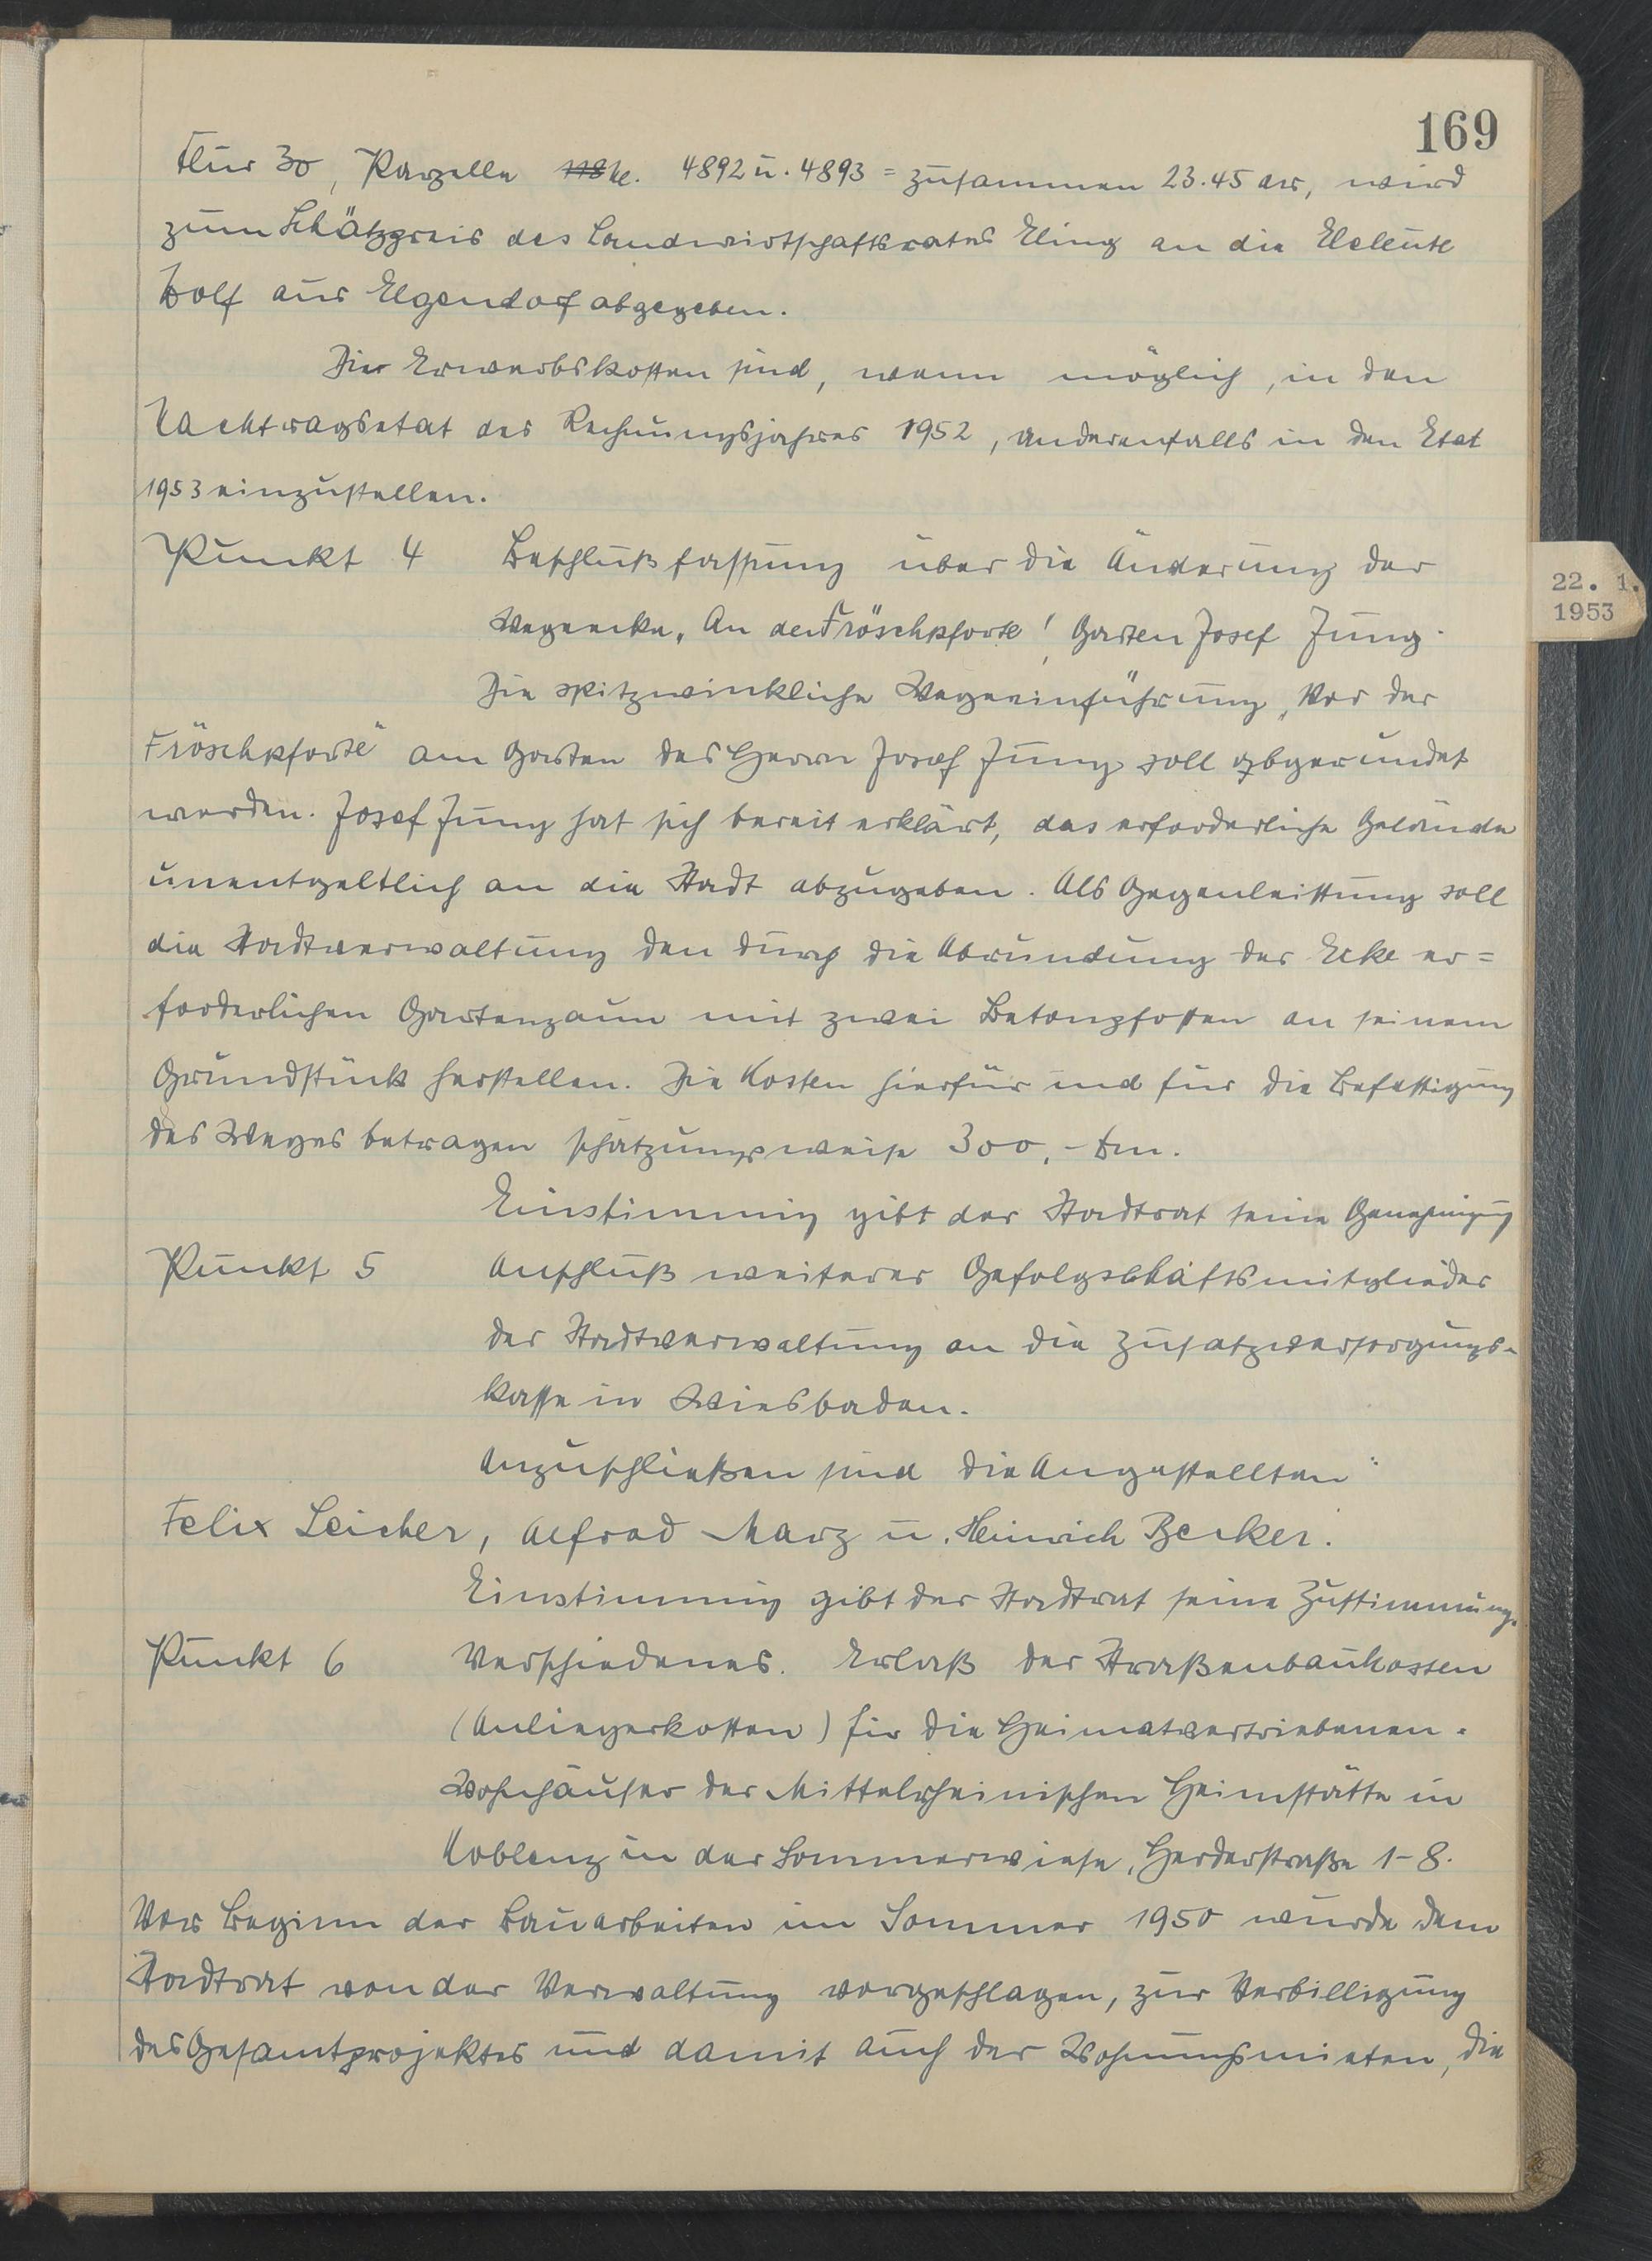 169
Flur 30, Parzelle 4892 u. 4893 = zusammen 23.45 ar, wird
zum Schätzpreis des Landwirtschaftsrates Eling an die Eheleute
Wolf aus Elgendorf abgegeben.
Die Erwerbskosten sind, wenn möglich, in den
Nachtragsetat des Rechnungsjahres 1952, anderenfalls in den Etat
1953 einzustellen.
Punkt 4 Beschlußfassung über die Änderung der
22. 1.
1953
Wegeecke „An der Fröschpforte", Garten Josef Jung.
Die spitzwinkliche Wegeeinführung „Vor der
Fröschpforte" am Garten des Herrn Josef Jung soll abgerundet
werden. Josef Jung hat sich bereit erklärt, das erforderliche Gelände
unentgeltlich an die Stadt abzugeben. Als Gegenleistung soll
die Stadtverwaltung den durch die Abrundung der Ecke er=
forderlichen Gartenzaun mit zwei Betonpfosten an seinem
Grundstück herstellen. Die Kosten hierfür und für die Befestigung
des Weges betragen schätzungsweise 300,- Dm.
Einstimmig gibt der Stadtrat seine Genehmigung
Punkt 5 Anschluß weiterer Gefolgschaftsmitglieder
der Stadtverwaltung an die Zusatzversorgungs-
kasse in Wiesbaden.
Anzuschließen sind die Angestellten:
Felix Leicher, Alfred Marz u. Heinrich Becker.
Einstimmig gibt der Stadtrat seine Zustimmung.
Punkt 6 Verschiedenes. Erlaß der Straßenbaukosten
(Anliegerkosten) für die Heimatvertriebenen-
Wohnhäuser der Mittelrheinischen Heimstätte in
Koblenz in der Sommerwiese, Herderstraße 1-8.
Vor Beginn der Bauarbeiten im Sommer 1950 wurde dem
Stadtrat von der Verwaltung vorgeschlagen, zur Verbilligung
des Gesamtprojektes und damit auch der Wohnungsmieten, die